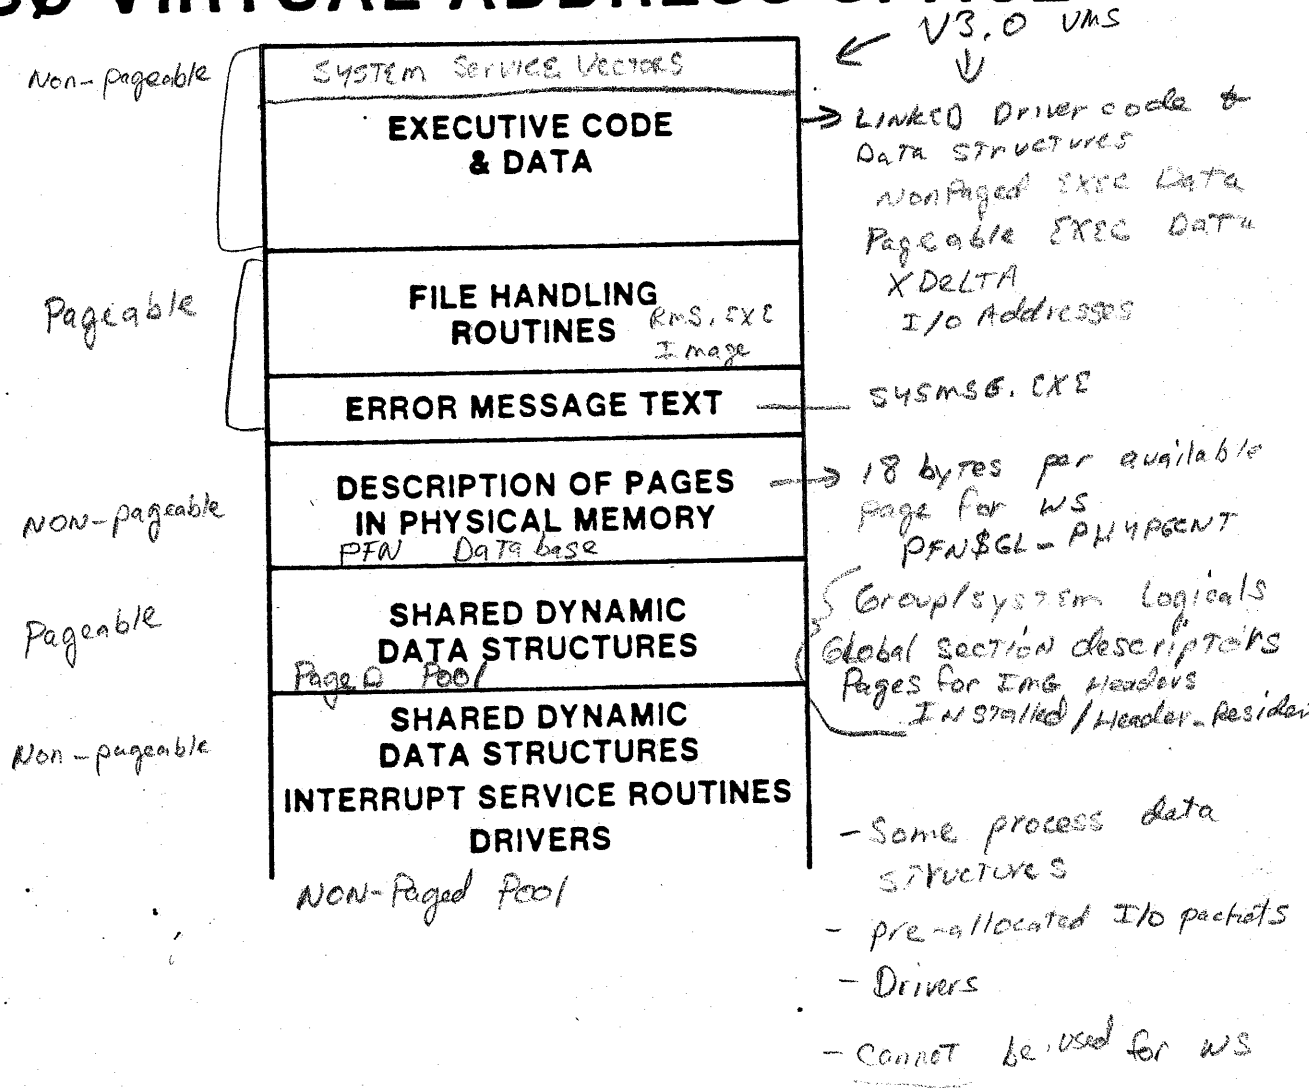 SØ VIRTUAL ADDRESS SPACE
V3.0 VMS
Non-pageable
SYSTEM SERVICE VECTORS
EXECUTIVE CODE
& DATA
LINKED Driver code &
Data STructures
NonPaged EXEC Data
Pageable EXEC Data
XDELTA
I/O Addresses
Pageable
FILE HANDLING
ROUTINES
RMS.EXE
Image
ERROR MESSAGE TEXT
SYSMSG.EXE
NON-pageable
DESCRIPTION OF PAGES
IN PHYSICAL MEMORY
PFN DaTa base
18 byTes per available
Page for WS
PFN$GL_PHYPGCNT
Pageable
SHARED DYNAMIC
DATA STRUCTURES
PageD Pool
Group/system Logicals
Global SecTioN descripTors
Pages for IMG Headers
INSTalled/Header_Residen
Non-pageable
SHARED DYNAMIC
DATA STRUCTURES
INTERRUPT SERVICE ROUTINES
DRIVERS
NON-Paged Pool
- Some process data
STrucTures
- pre-allocated I/O packets
- Drivers
- CannoT be used for WS